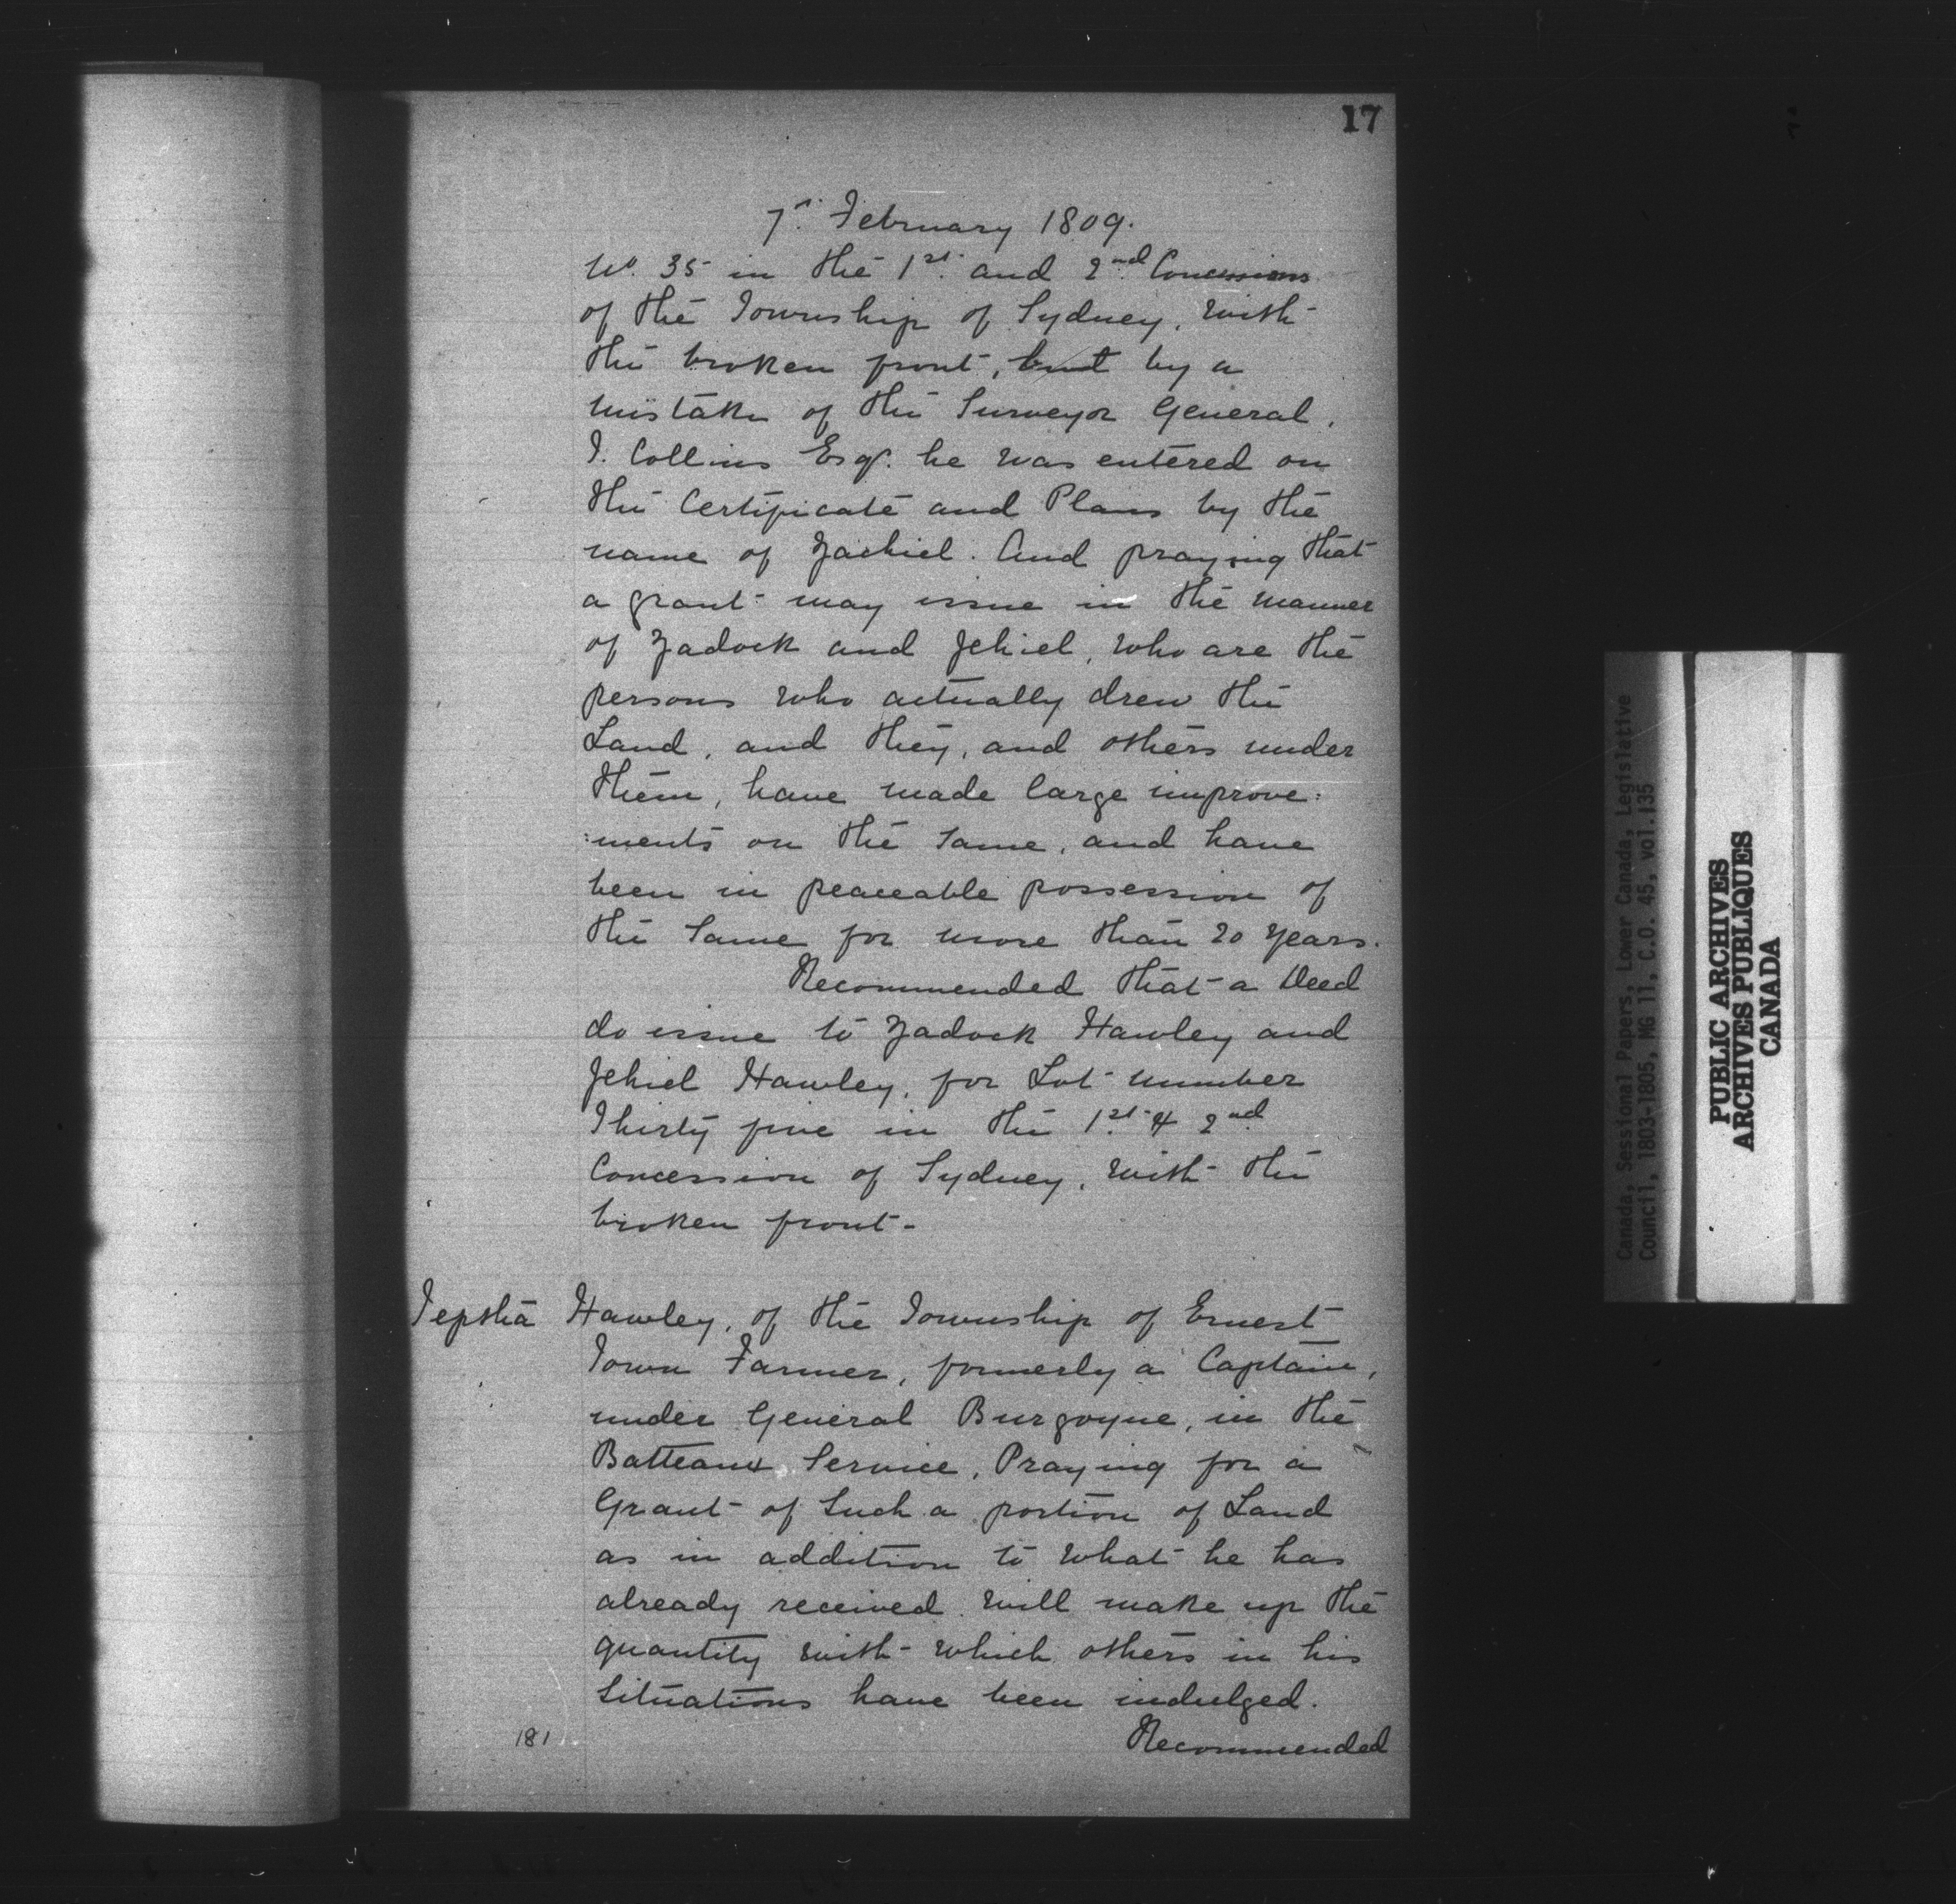 17
7th February 1809.
No. 35 in the 1st and 2nd Concessions
of the Township of Sydney, with
the broken front, but by a
mistake of the Surveyor General,
J. Collins Esqr. he was entered on
the Certificate and Plans by the
name of Zachiel. And praying that
a grant may issue in the manner
of Zadock and Jehiel, who are the
persons who actually drew the
Land, and they, and others under
them, have made large improve:
:ments on the same, and have
been in peaceable possession of
the Same for more than 20 years.
Recommended that a Deed
do issue to Zadock Hawley and
Jehiel Hawley, for Lot number
Thirty five in the 1st & 2nd
Concession of Sydney, with the
broken front-
Jeptha Hawley, of the Township of Ernest
Town Farmer, formerly a Captain,
under General Burgoyne, in the
Batteaux Service, Praying for a
Grant of Such a portion of Land
as in addition to what he has
already received will make up the
quantity with which others in his
Situations have been indulged.
181
Recommended
Canada, Sessional Papers, Lower Canada, Legislative
Council, 1803-1805, MG 11, C.O. 45, vol.135
PUBLIC ARCHIVES
ARCHIVES PUBLIQUES
CANADA